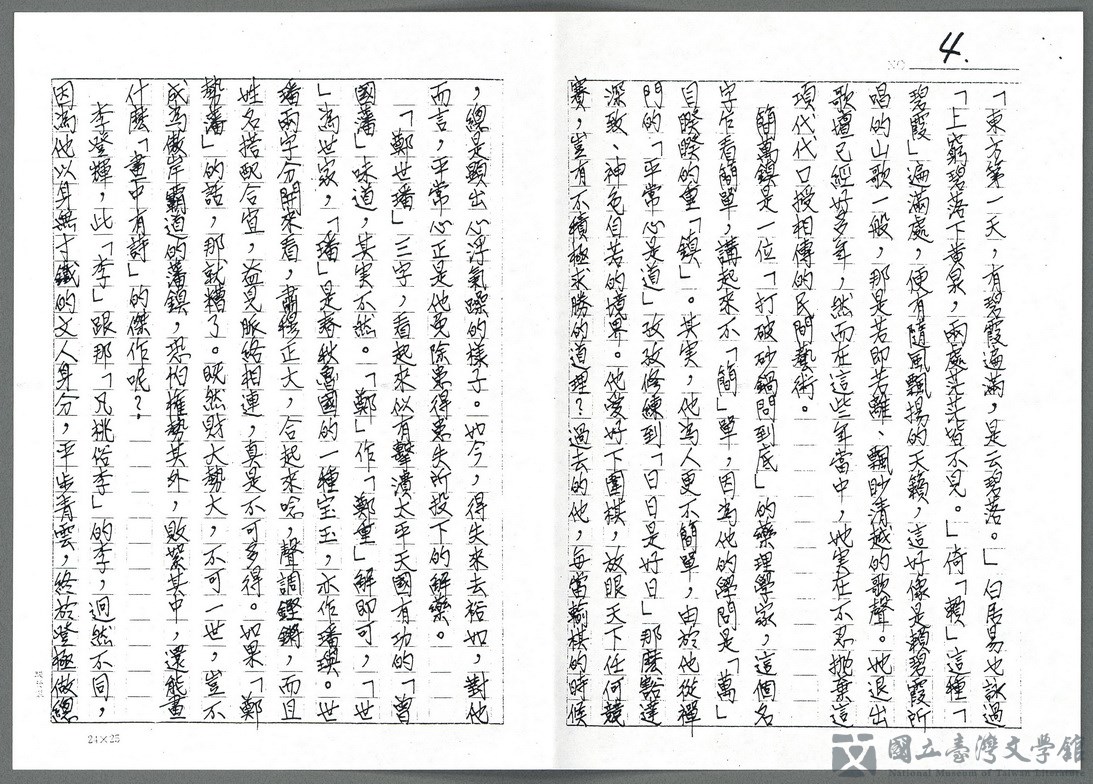 4.
「東方第一天,有碧霞遍滿,是云碧落。」白居易也詠過
「上窮碧落下黃泉,兩處茫茫皆不見。」倚「賴」這種「
碧霞」遍滿處,便有隨風飄揚的天籟,這好像是賴碧霞所
唱的山歌一般,那是若即若離、飄眇清越的歌聲。她退出
歌壇已經好多年,然而在這些年當中,她实在不忍拋棄這
項代代口授相傳的民間藝術。
簡萬鎮是一位「打破砂鍋問到底」的藥理學家,這個名
字乍看簡單,講起來不「簡」單,因為他的學問是「萬」
目睽睽的重「鎮」。其実,他為人更不簡單,由於他從禪
門的「平常心是道」孜孜修練到「日日是好日」那麼豁達
深致、神色自若的境界。他愛好下圍棋,放眼天下任何競
賽,豈有不積極求勝的道理?過去的他,每當輸棋的時候
,總是顯出心浮氣躁的樣子。如今,得失來去裕如,對他
而言,平常心正是他免除患得患失所投下的解藥。
「鄭世璠」三字,看起來似有擊潰太平天國有功的「曾
國藩」味道,其実不然。「鄭」作「鄭重」解即可,「世
」為世家,「璠」是春秋魯國的一種宝玉,亦作璠璵。世
璠兩字分開來看,肅穆正大,合起來唸,聲調鏗鏘,而且
姓名搭配合宜,益見脈絡相連,真是不可多得。如果「鄭
勢藩」的話,那就糟了。既然財大勢大,不可一世,豈不
成為傲岸霸道的藩鎮,恐怕權勢其外,敗絮其中,還能畫
什麼「畫中有詩」的傑作呢?
李登輝,此「李」跟那「凡桃俗李」的李,迥然不同,
因為他以身無寸鐵的文人身分,平步青雲,終於登極做總
24×25
國立臺灣文學館
National Museum of Taiwan Literature